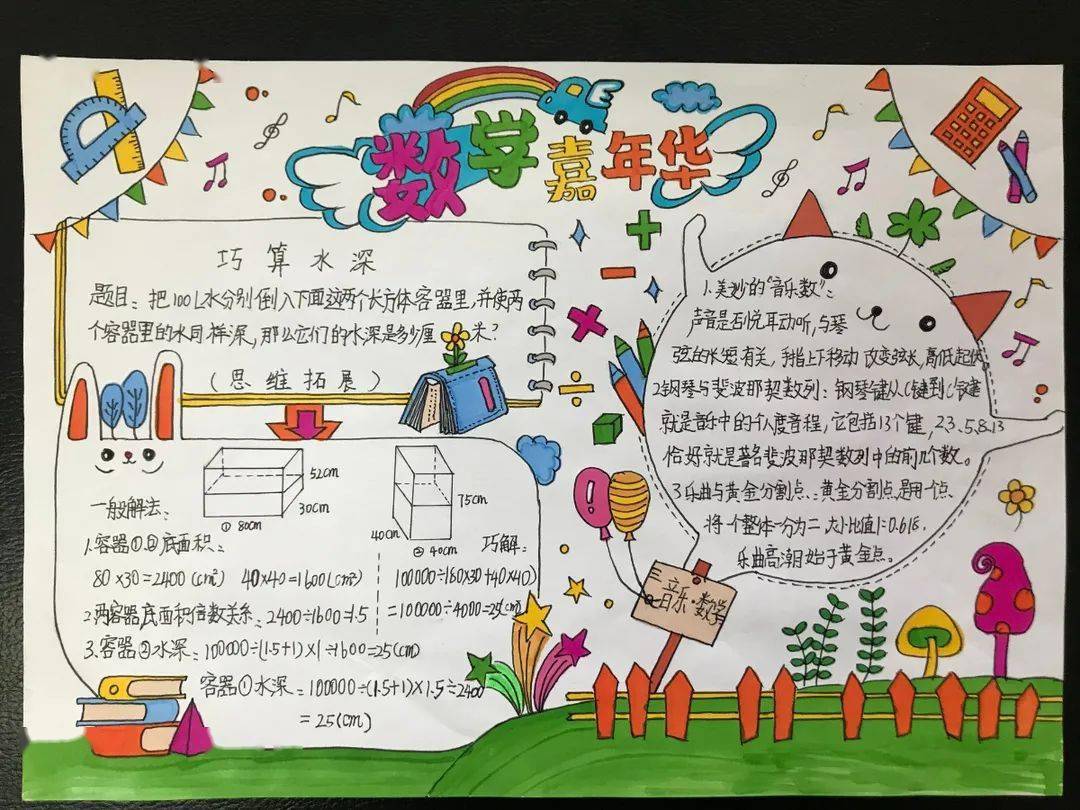 数学嘉年华
巧算水深
题目：把100L水分别倒入下面这两个长方体容器里，并使两
个容器里的水同样深，那么它们的水深是多少厘米？
（思维拓展）
52cm
30cm
① 80cm
75cm
40cm
② 40cm
一般解法：
1.容器①、②底面积：
80×30=2400(cm²) 40×40=1600(cm²)
2.两容器底面积倍数关系：2400÷1600=1.5
3.容器②水深：100000÷(1.5+1)×1÷1600=25(cm)
容器①水深=100000÷(1.5+1)×1.5÷2400
=25(cm)
巧解：
100000÷(80×30+40×40)
=100000÷4000=25(cm)
1.美妙的"音乐数"：
声音是否悦耳动听，与琴
弦的长短有关，手指上下移动 改变弦长，高低起伏
2钢琴与斐波那契数列：钢琴键从C键到C'键
就是音乐中的个八度音程，它包括13个键，2.3.5.8.13
恰好就是著名斐波那契数列中的前几个数。
3.乐曲与黄金分割点：黄金分割点是用一个点、
将一个整体一分为二 大小比值1:0.618，
乐曲高潮始于黄金点。
音乐·数学